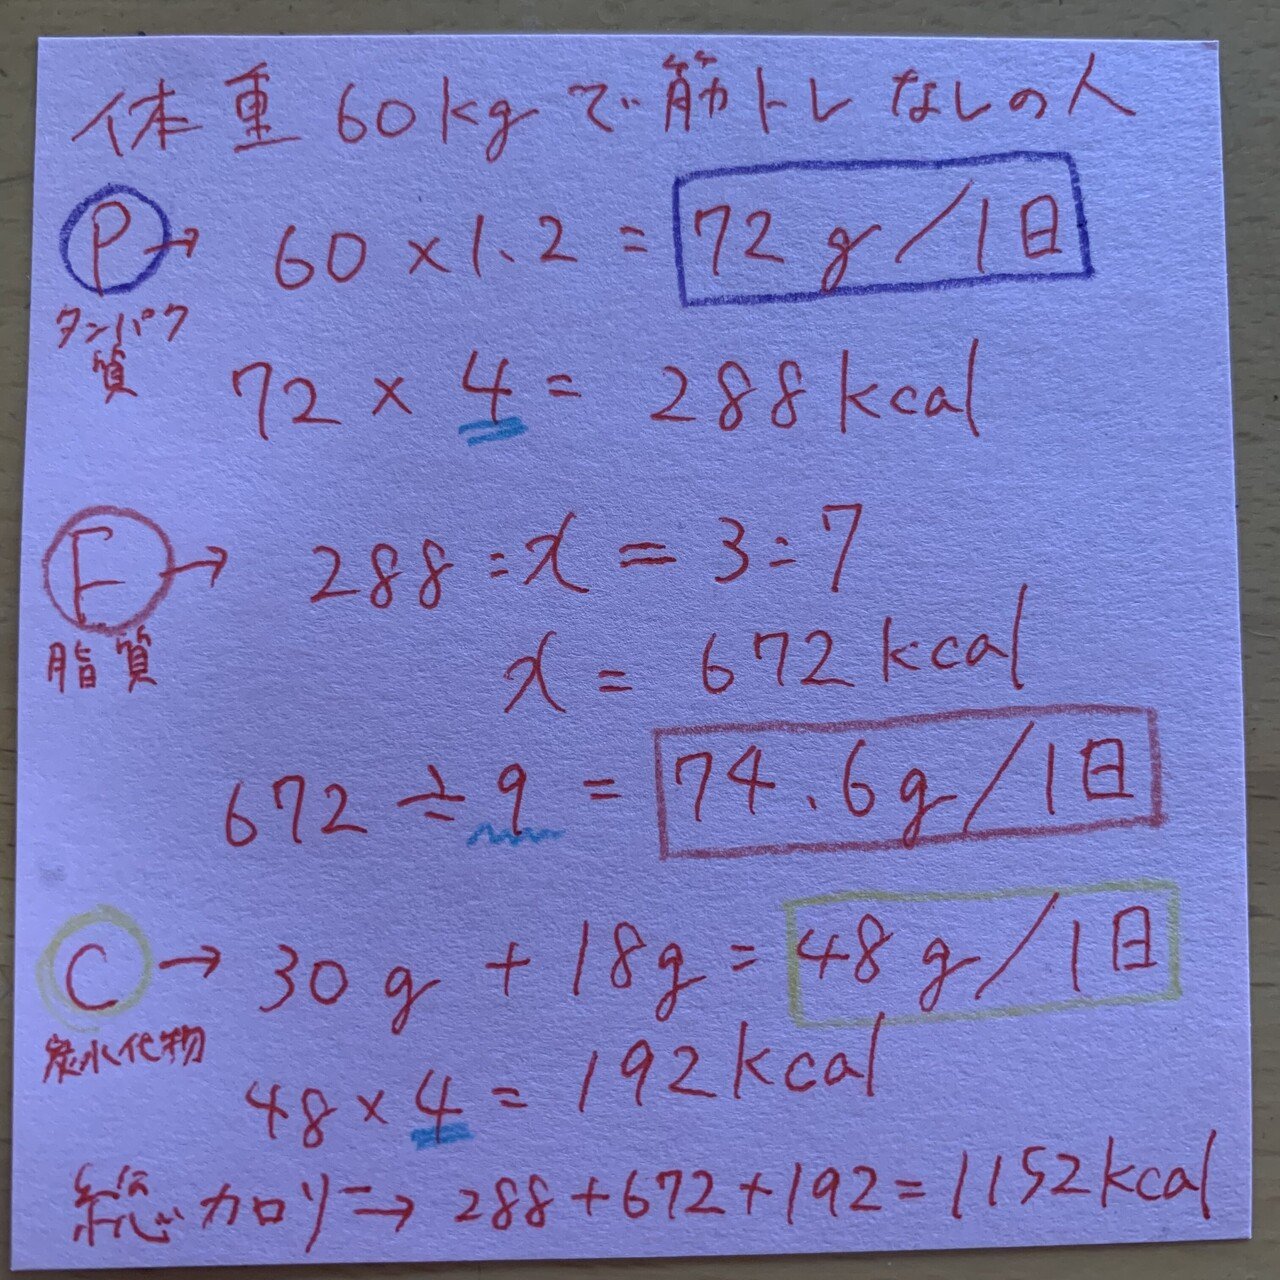 体重60kgで筋トレなしの人
P→ 60×1.2=72g/1日
タンパク
質
72×4=288kcal
F→ 288:x=3:7
脂質
x=672kcal
672÷9=74.6g/1日
C→ 30g+18g=48g/1日
炭水化物
48×4=192kcal
総カロリー→288+672+192=1152kcal